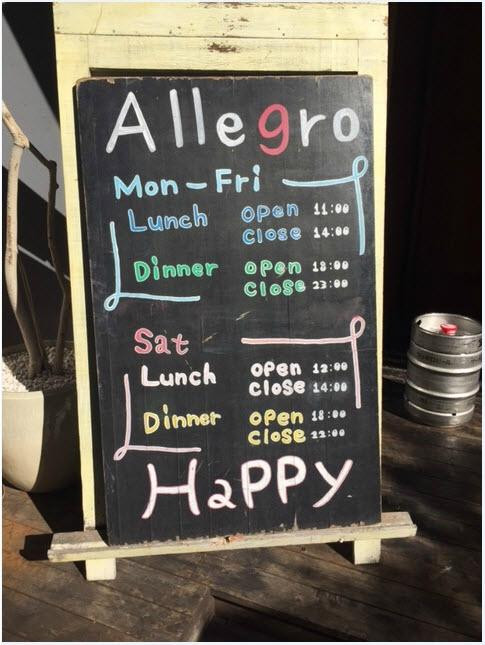 Allegro
Mon-Fri
Lunch open 11:00
close 14:00
Dinner open 18:00
close 23:00
Sat
Lunch open 12:00
close 14:00
Dinner open 18:00
close 22:00
HaPPY